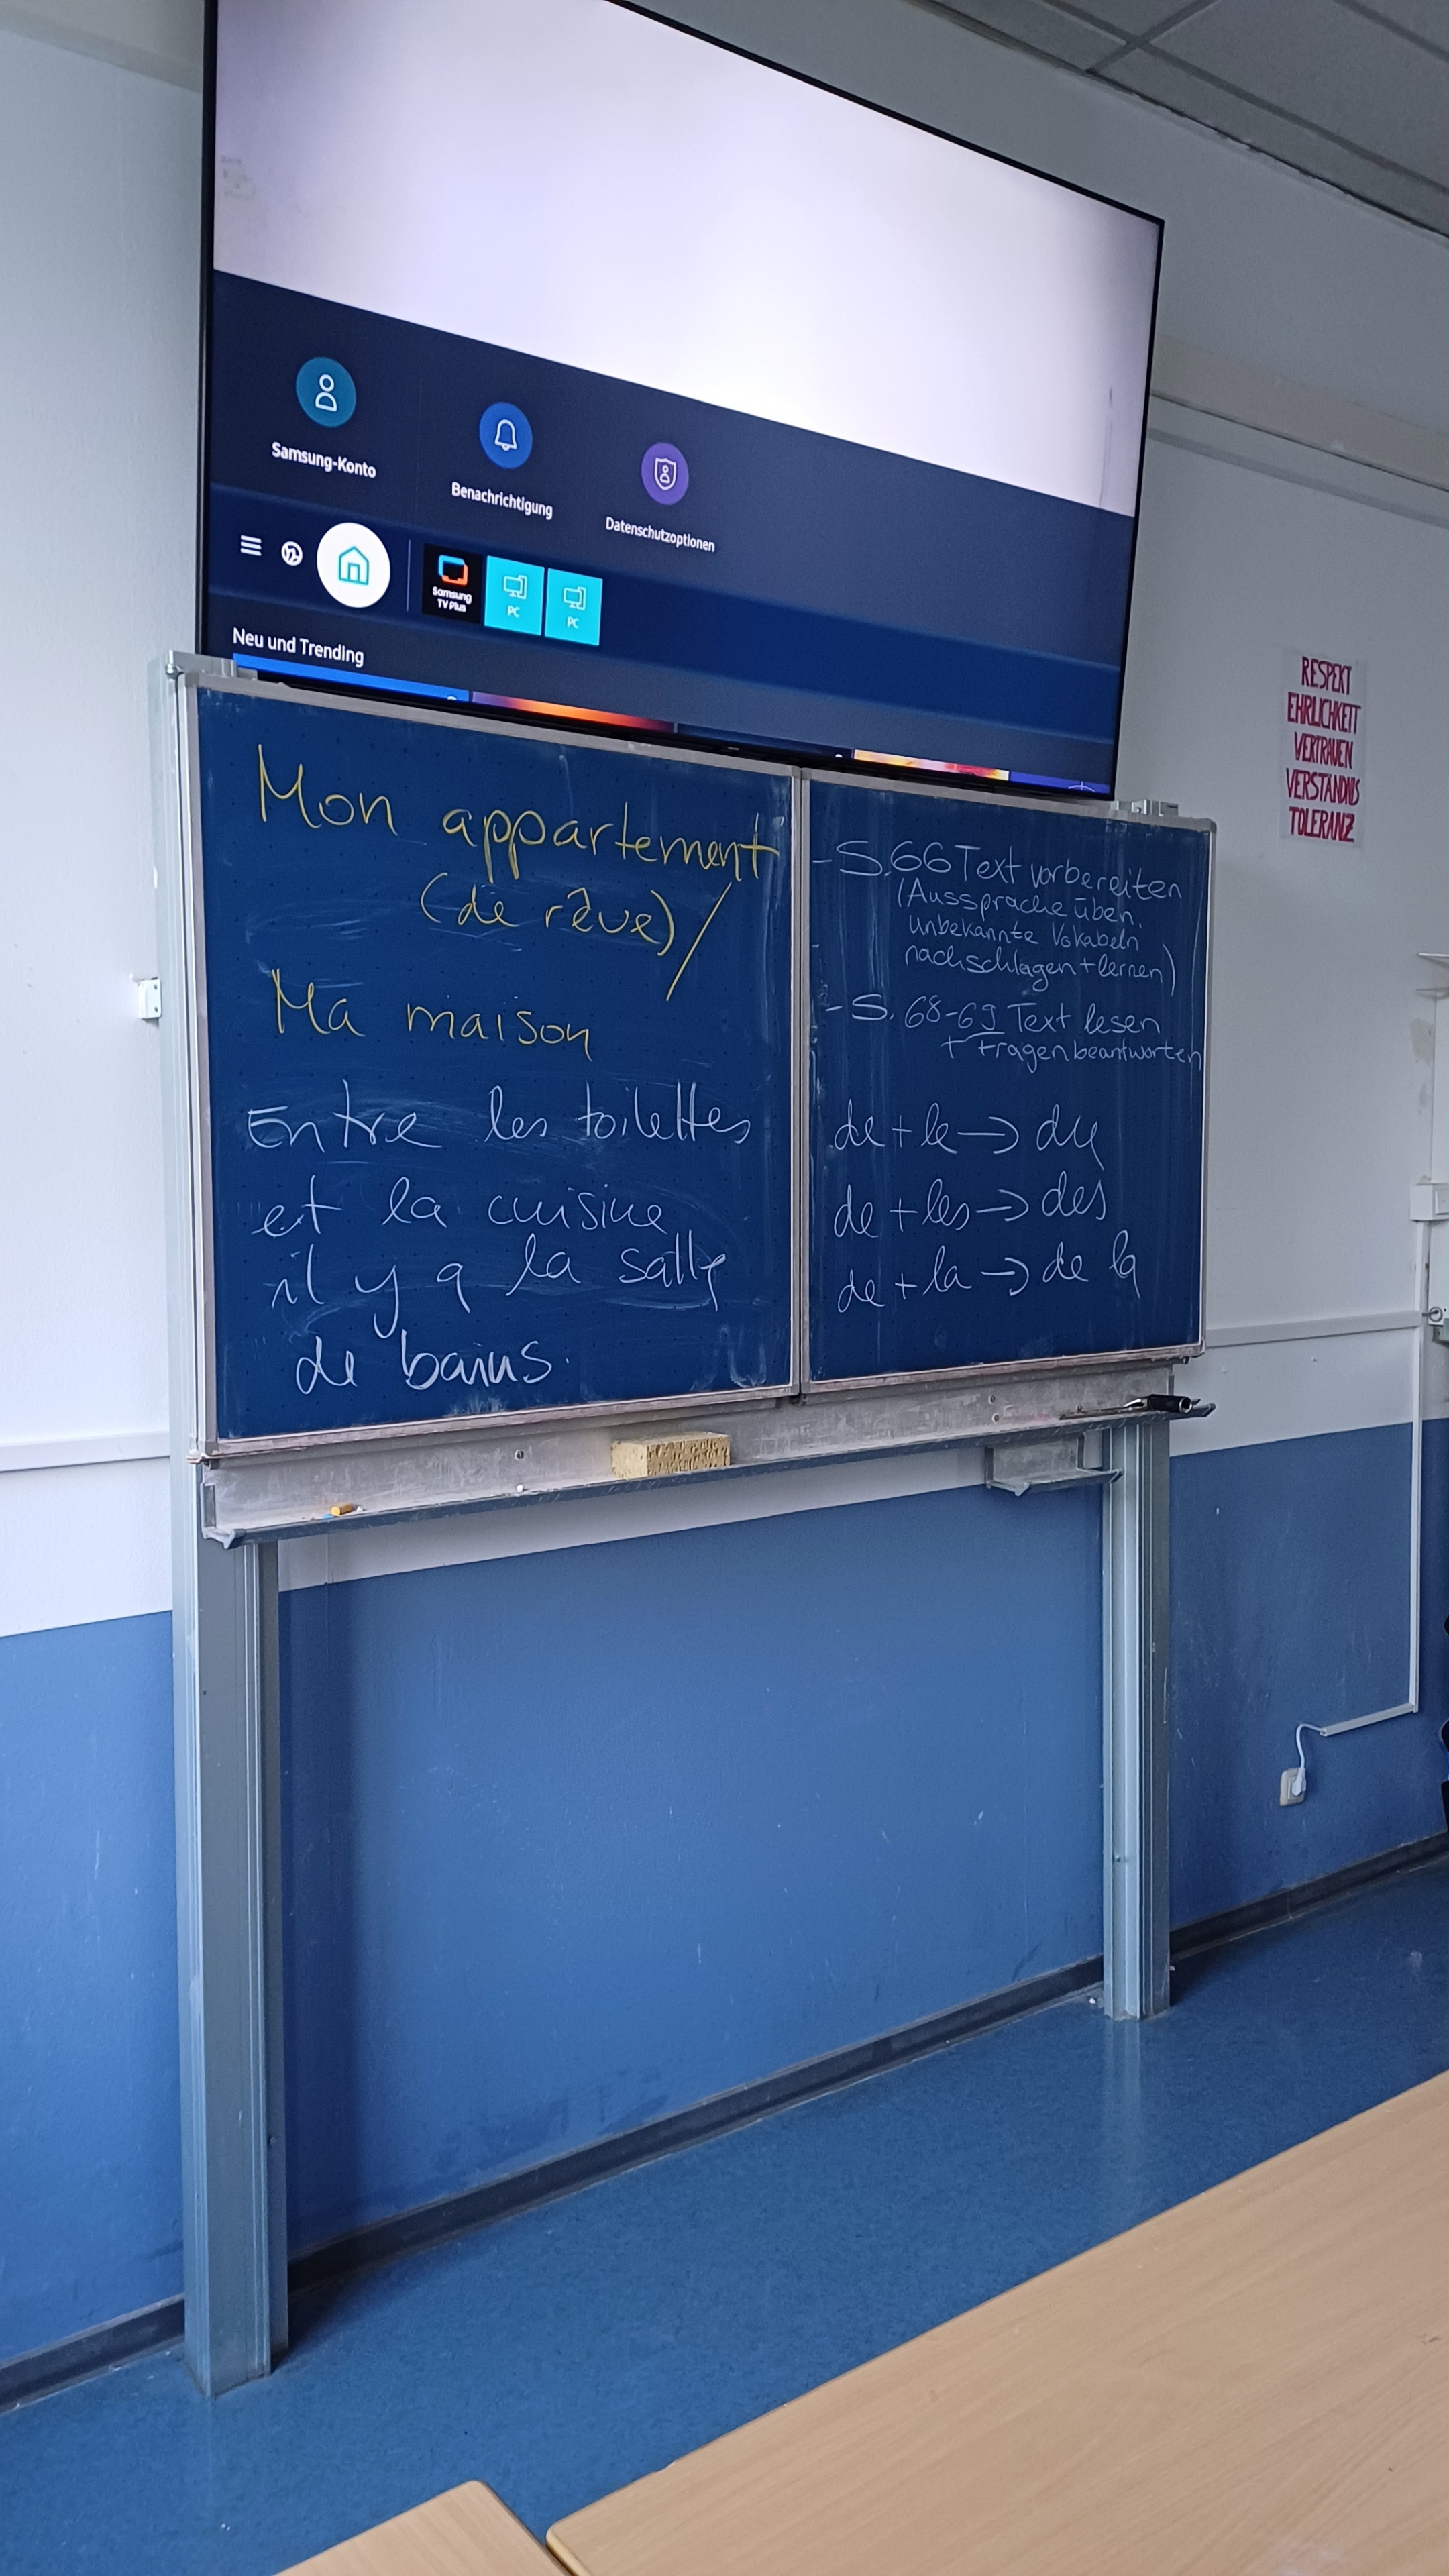 Samsung-Konto
Benachrichtigung
Datenschutzoptionen
Samsung
TV Plus
PC
PC
Neu und Trending
Mon appartement
(de rêve) /
Ma maison
Entre les toilettes
et la cuisine
il y a la salle
de bains.
- S. 66 Text vorbereiten
(Aussprache üben,
unbekannte Vokabeln
nachschlagen + lernen)
- S. 68-69 Text lesen
+ Fragen beantworten
de + le → du
de + les → des
de + la → de la
RESPEKT
EHRLICHKEIT
VERTRAUEN
VERSTÄNDNIS
TOLERANZ